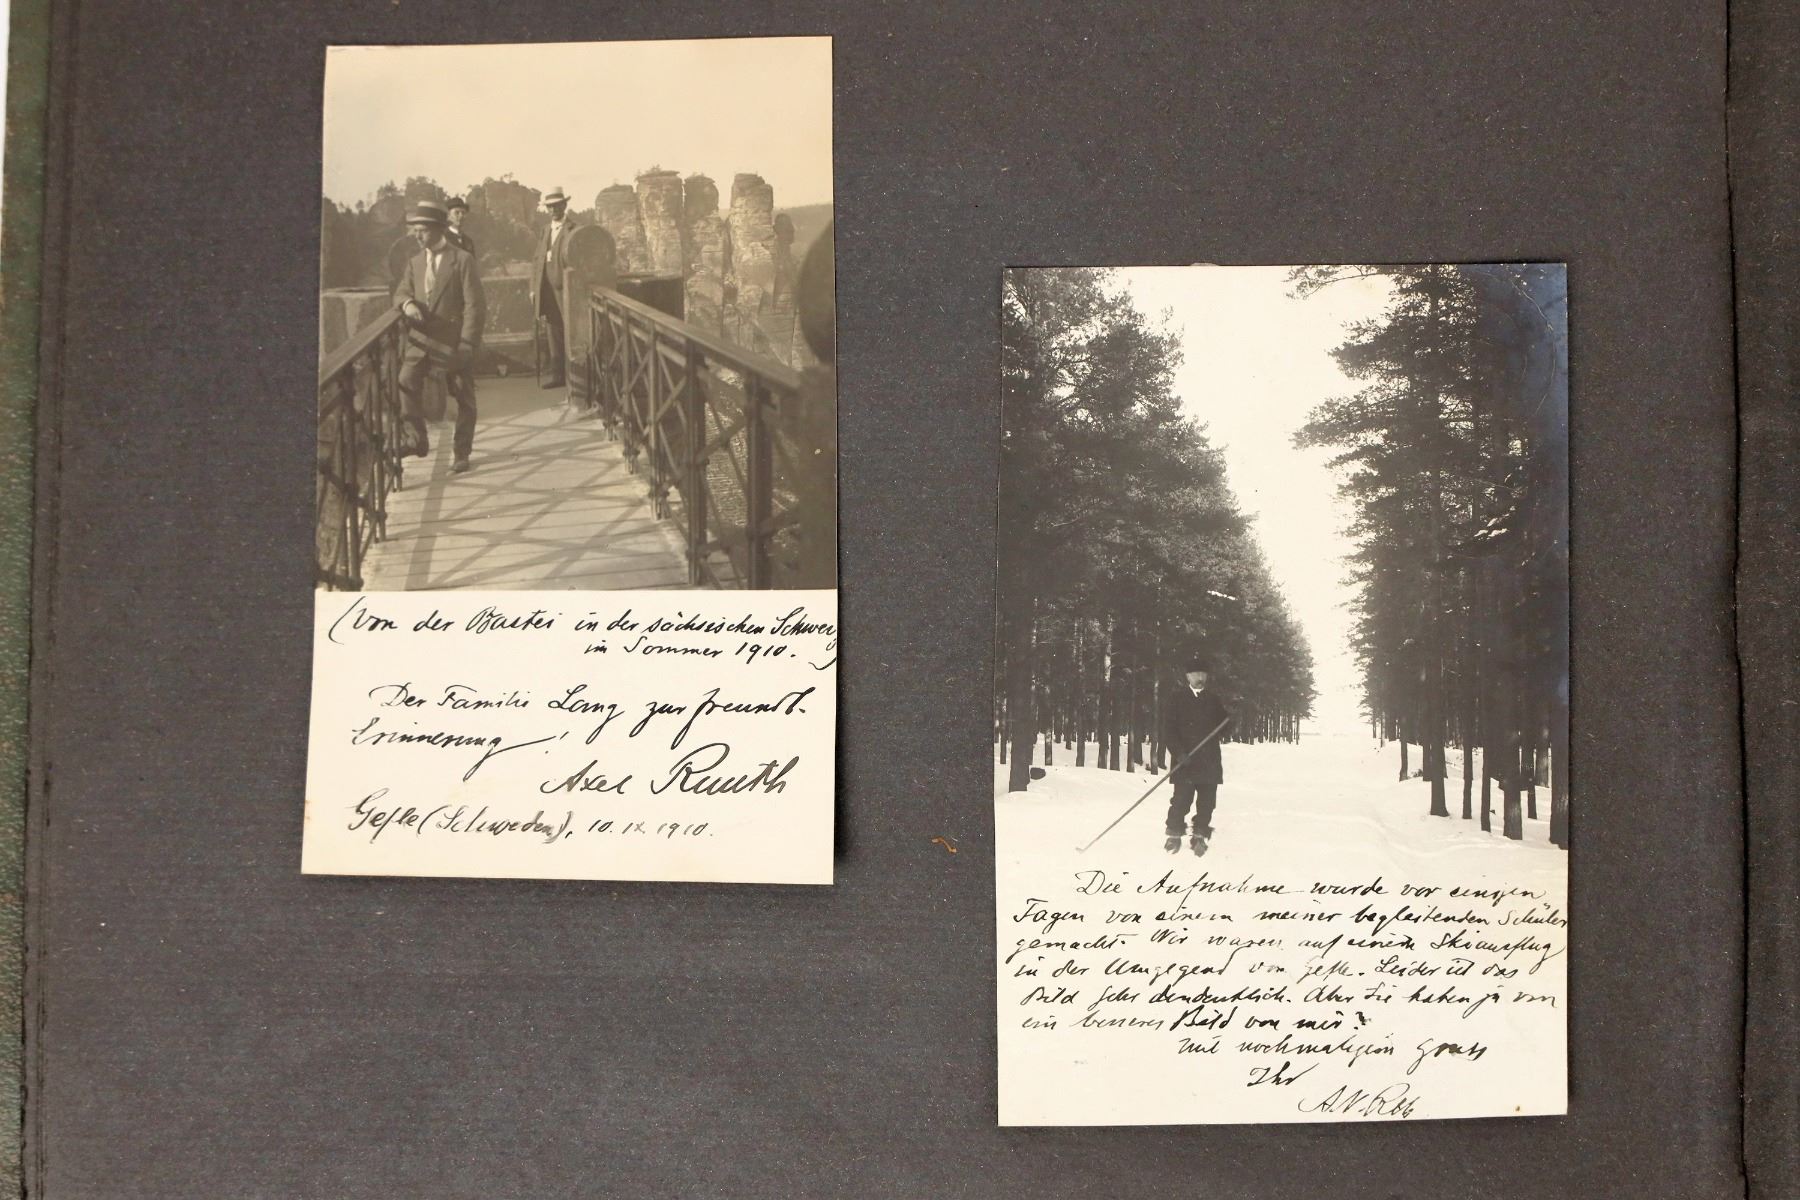 (Von der Bastei in der sächsischen Schweiz
im Sommer 1910.)
Der Familie Lang zur freundl.
Erinnerung!
Axel Ruuth
Gefle (Schweden), 10. IX. 1910.
Die Aufnahme wurde vor einigen
Tagen von einem meiner begleitenden Schüler
gemacht. Wir waren auf einem Skiausflug
in der Umgegend von Gefle. Leider ist das
Bild sehr undeutlich. Aber Sie haben ja von
ein besseres Bild von mir?
Mit nochmaligem Gruss
Ihr
A.V.